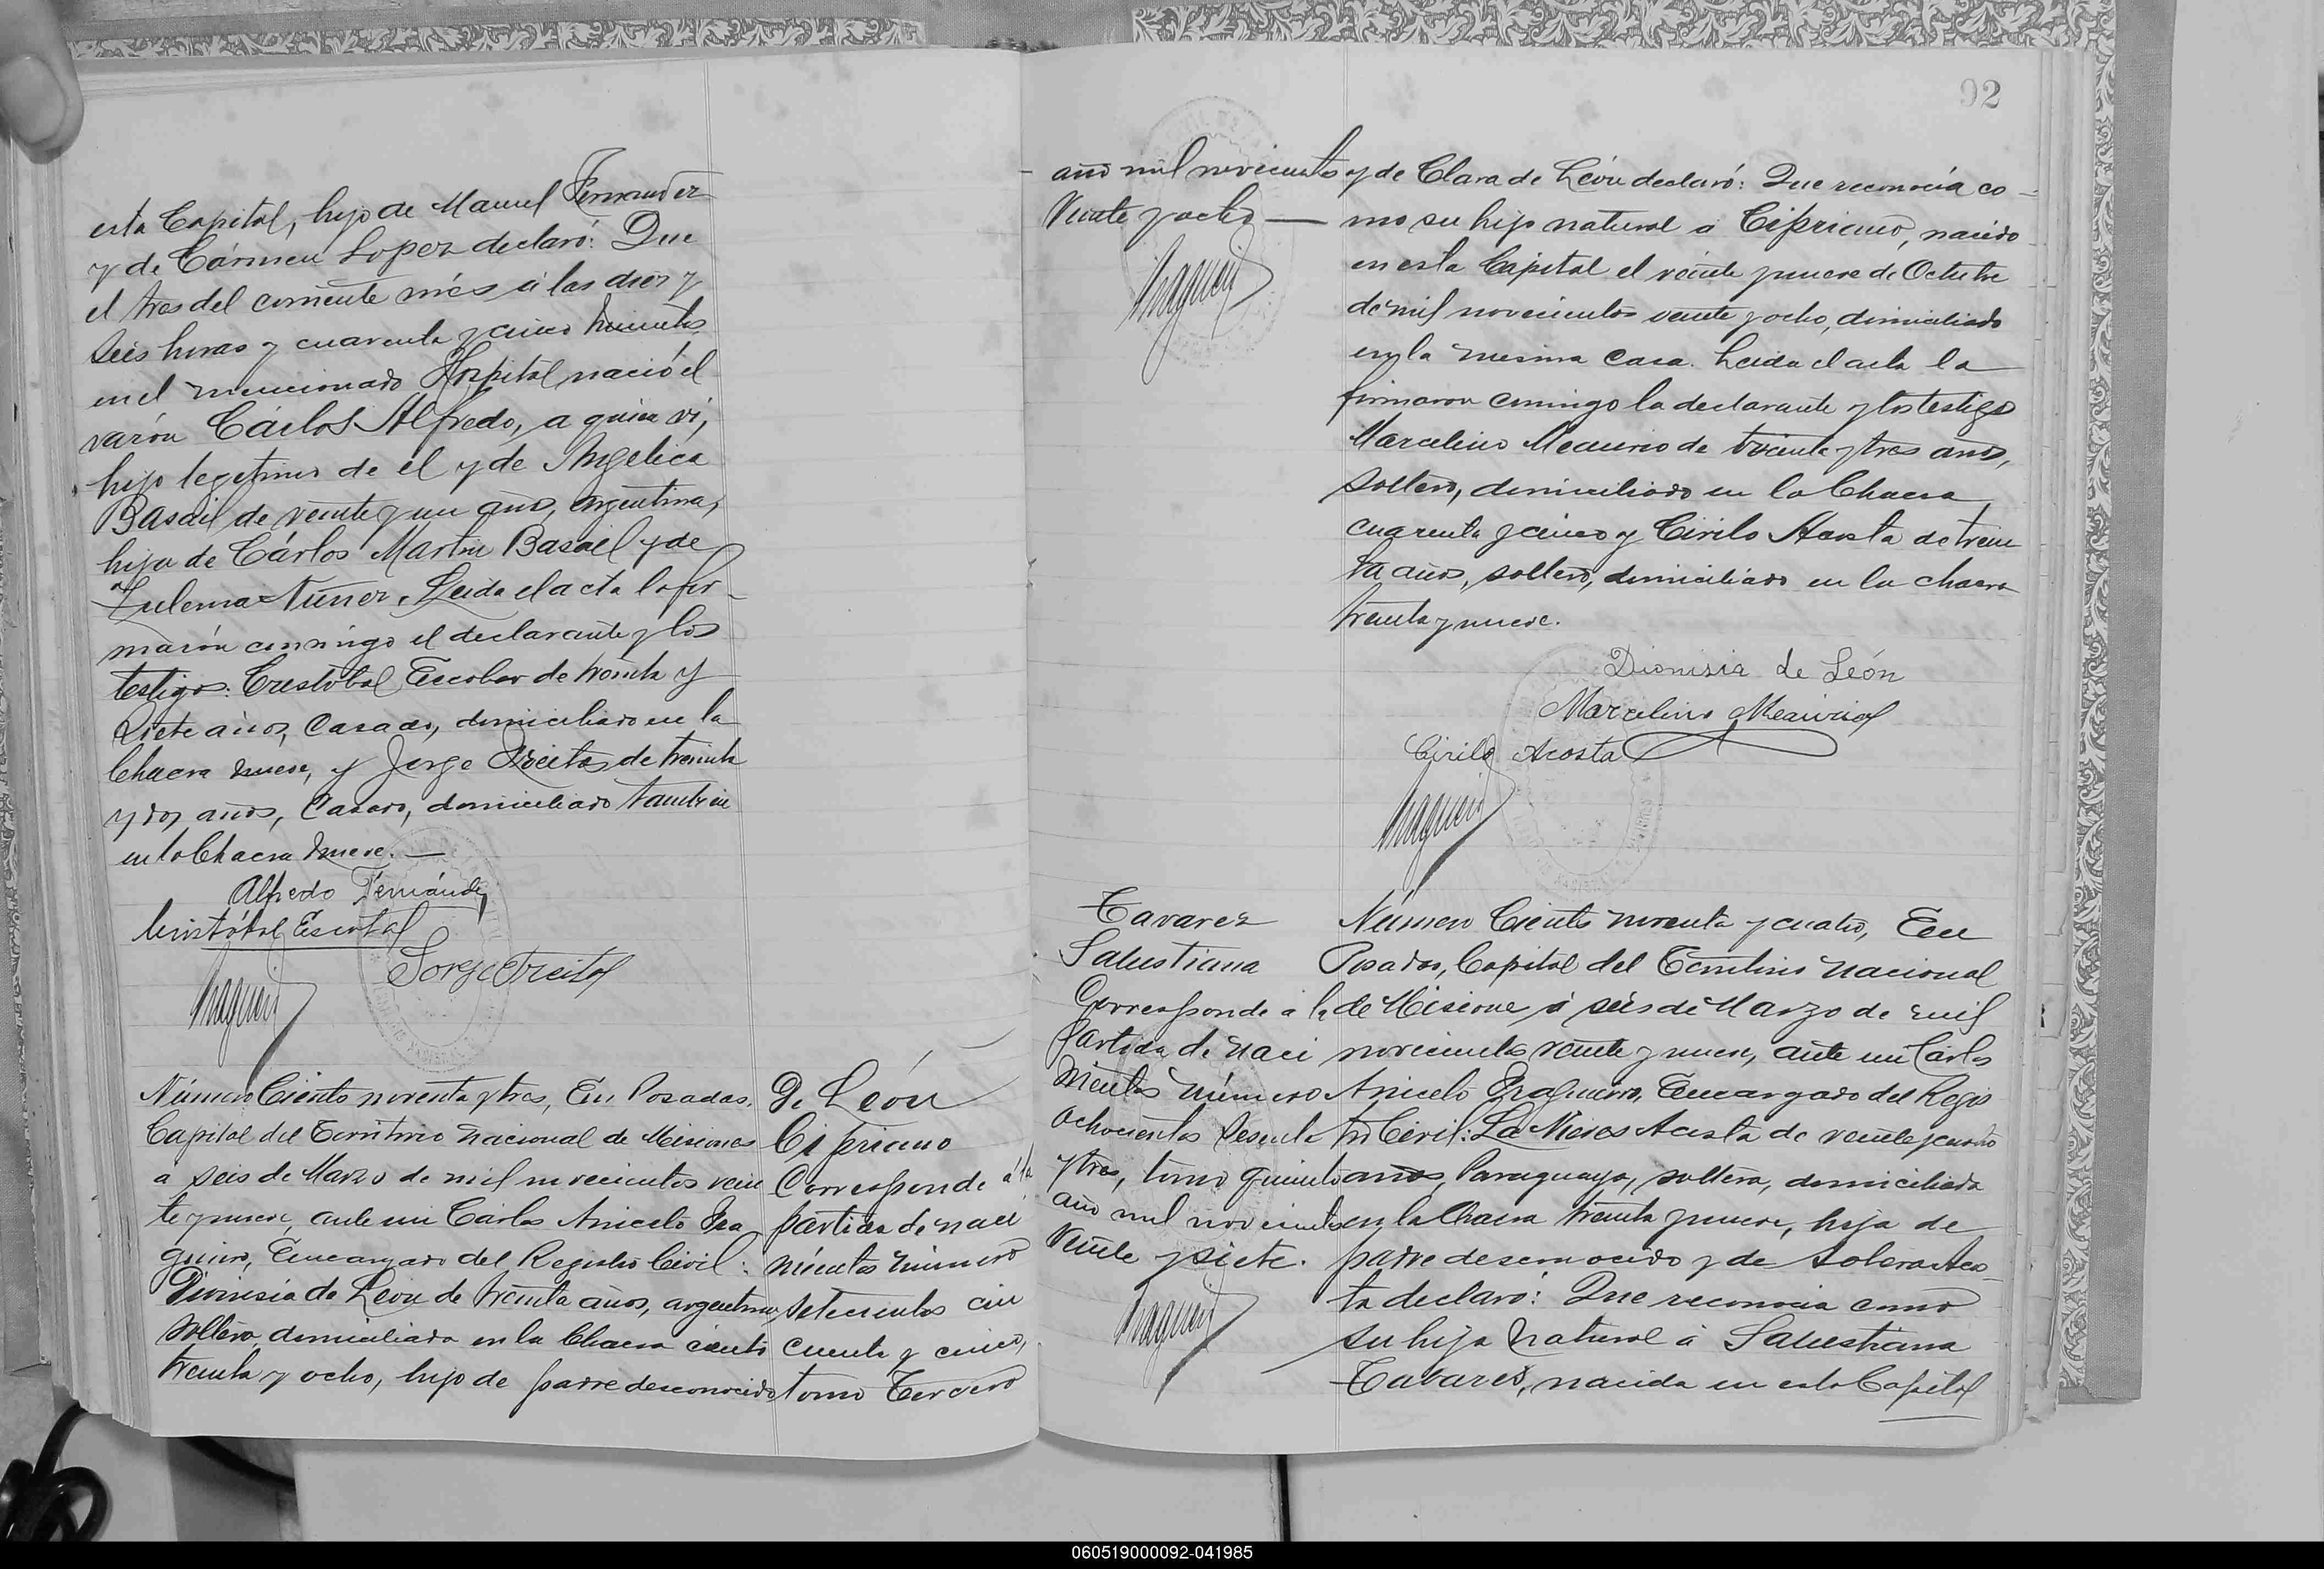 esta Capital, hijo de Manuel Fernandez
y de Cármen Lopez declaró: Que
el tres del corriente més á las diez y
seis horas y cuarenta y cinco minutos
en el mencionado Hospital nació el
varón Cárlos Alfredo, a quien vi,
hijo legitimo de el y de Angélica
Basail de veinte y un año, argentina,
hija de Cárlos Martin Basail y de
Zulema Nuñez. Leida el acta la fir-
maron conmigo el declarante y los
testigos: Cristóbal Escobar de treinta y
siete años, Casado, domiciliado en la
Chacra nueve, y Jorge Freitas de treinta
y dos años, Casado, domiciliado tambien
en la Chacra nueve. —
Alfredo Fernández
Cristóbal Escobal
Jorge Freitas
Número Ciento noventa y tres, En Posadas,
Capital del Territorio Nacional de Misiones
a seis de Marzo de mil novecientos vein
te y nueve, ante mi Carlos Aniceto Fra
gueiro, Encargado del Registro Civil:
Dionisia de León de treinta años, argentina
soltera, domiciliada en la Chacra ciento
treinta y ocho, hija de padre desconocido
De León
Cipriano
Corresponde á la
partida de naci
mientos número
setecientos cin
cuenta y cinco,
tomo Tercero
92
año mil novecientos
veinte y ocho —
y de Clara de León declaró: Que reconocia co-
mo su hijo natural a Cipriano, nacido
en esta Capital el veinte y nueve de Octubre
de mil novecientos veinte y ocho, domiciliado
en la misma casa. Leida el acta la
firmaron conmigo la declarante y los testigos
Marcelino de treinta y tres años,
soltero, domiciliado en la Chacra
cuarenta y cinco y Cirilo Acosta de trein
ta años, soltero, domiciliado en la chacra
treinta y nueve.
Dionisia de León
Marcelino
Cirilo Acosta
Tavarez
Salustiana
Corresponde a la
Partida de Naci
mientos número
ochocientos sesenta
y tres, tomo quinto
año mil novecientos
veinte y siete.
Número Ciento noventa y cuatro, En
Posadas, Capital del Territorio Nacional
de Misiones á seis de Marzo de mil
novecientos veinte y nueve, ante mi Carlos
Aniceto Fragueiro, Encargado del Regis
tro Civil: La Nieves Acosta de veinte y cuatro
años, Paraguaya, soltera, domiciliada
en la Chacra treinta y nueve, hija de
padre desconocido y de Acos-
ta declaró: Que reconocia como
su hija natural á Salustiana
Tavares, nacida en esta Capital
060519000092-041985